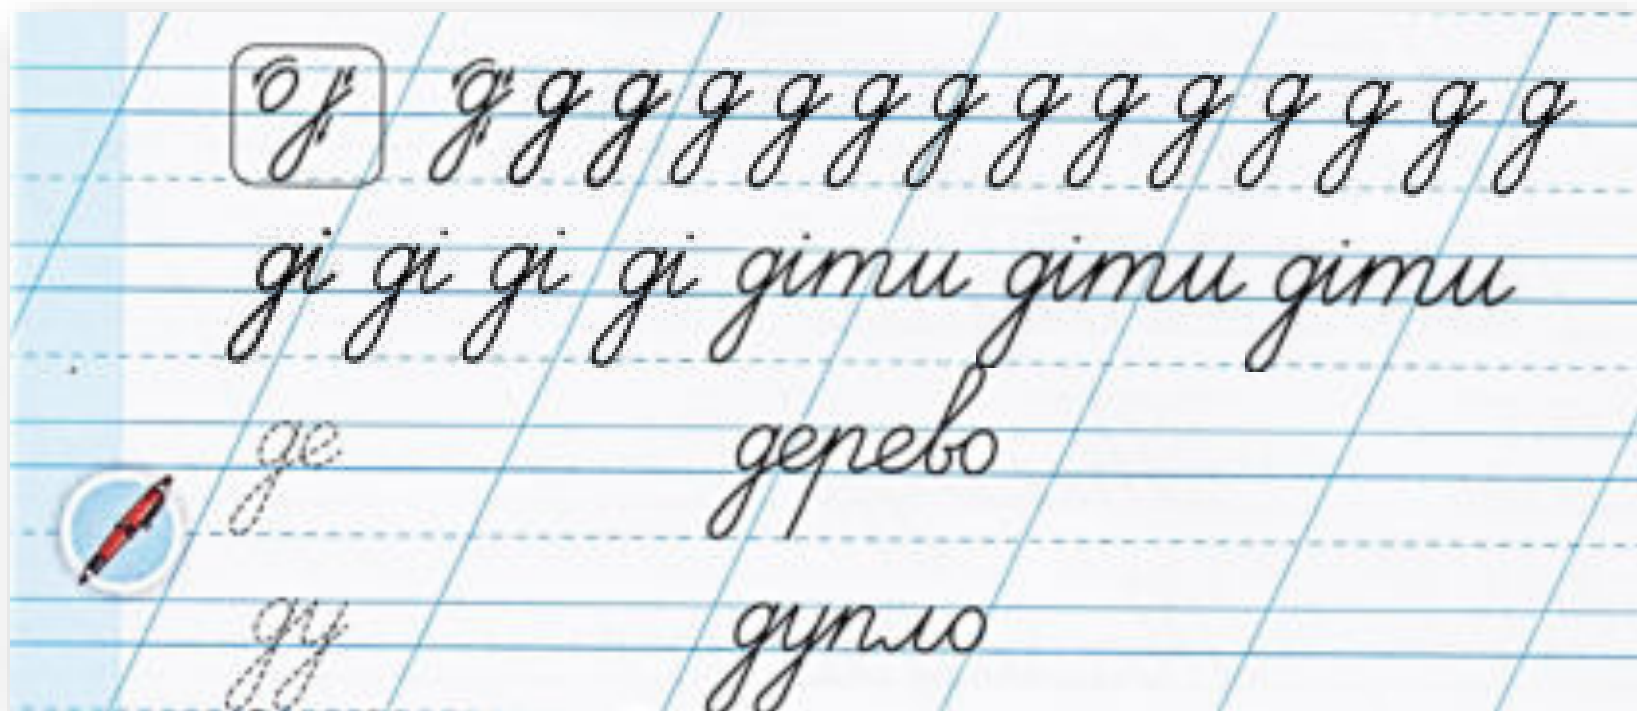 д д д д д д д д д д д д д д
ді ді ді ді діти діти діти
де дерево
ду дупло